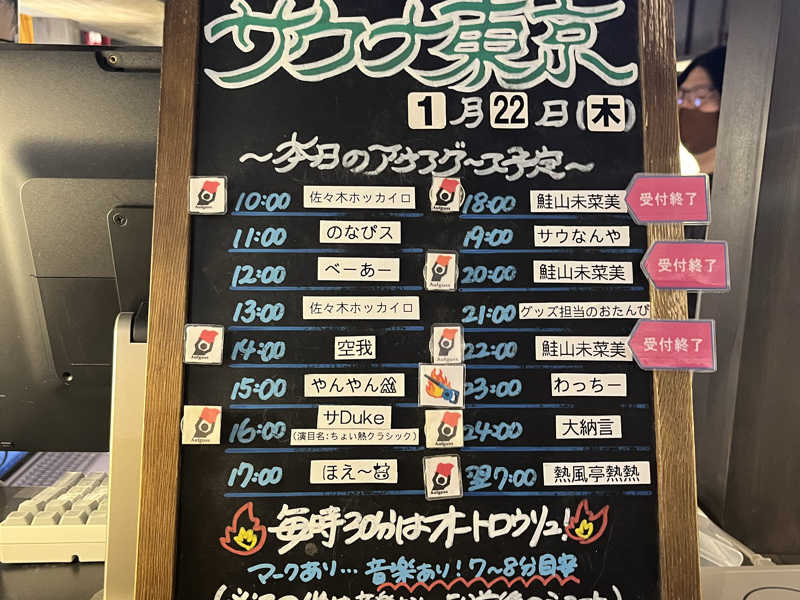 サウナ東京
1月22日(木)
～本日のアウフグース予定～
10:00 佐々木ホッカイロ
11:00 のなぴス
12:00 べーあー
13:00 佐々木ホッカイロ
14:00 空我
15:00 やんやん
16:00 サDuke
(演目名:ちょい熱クラシック)
17:00 ほえ～
18:00 鮭山未菜美 受付終了
19:00 サウなんや
20:00 鮭山未菜美 受付終了
21:00 グッズ担当のおたんぴ
22:00 鮭山未菜美 受付終了
23:00 わっちー
24:00 大納言
翌7:00 熱風亭熱熱
毎時30分はオートロウリュ!
マークあり…音楽あり!7～8分目安